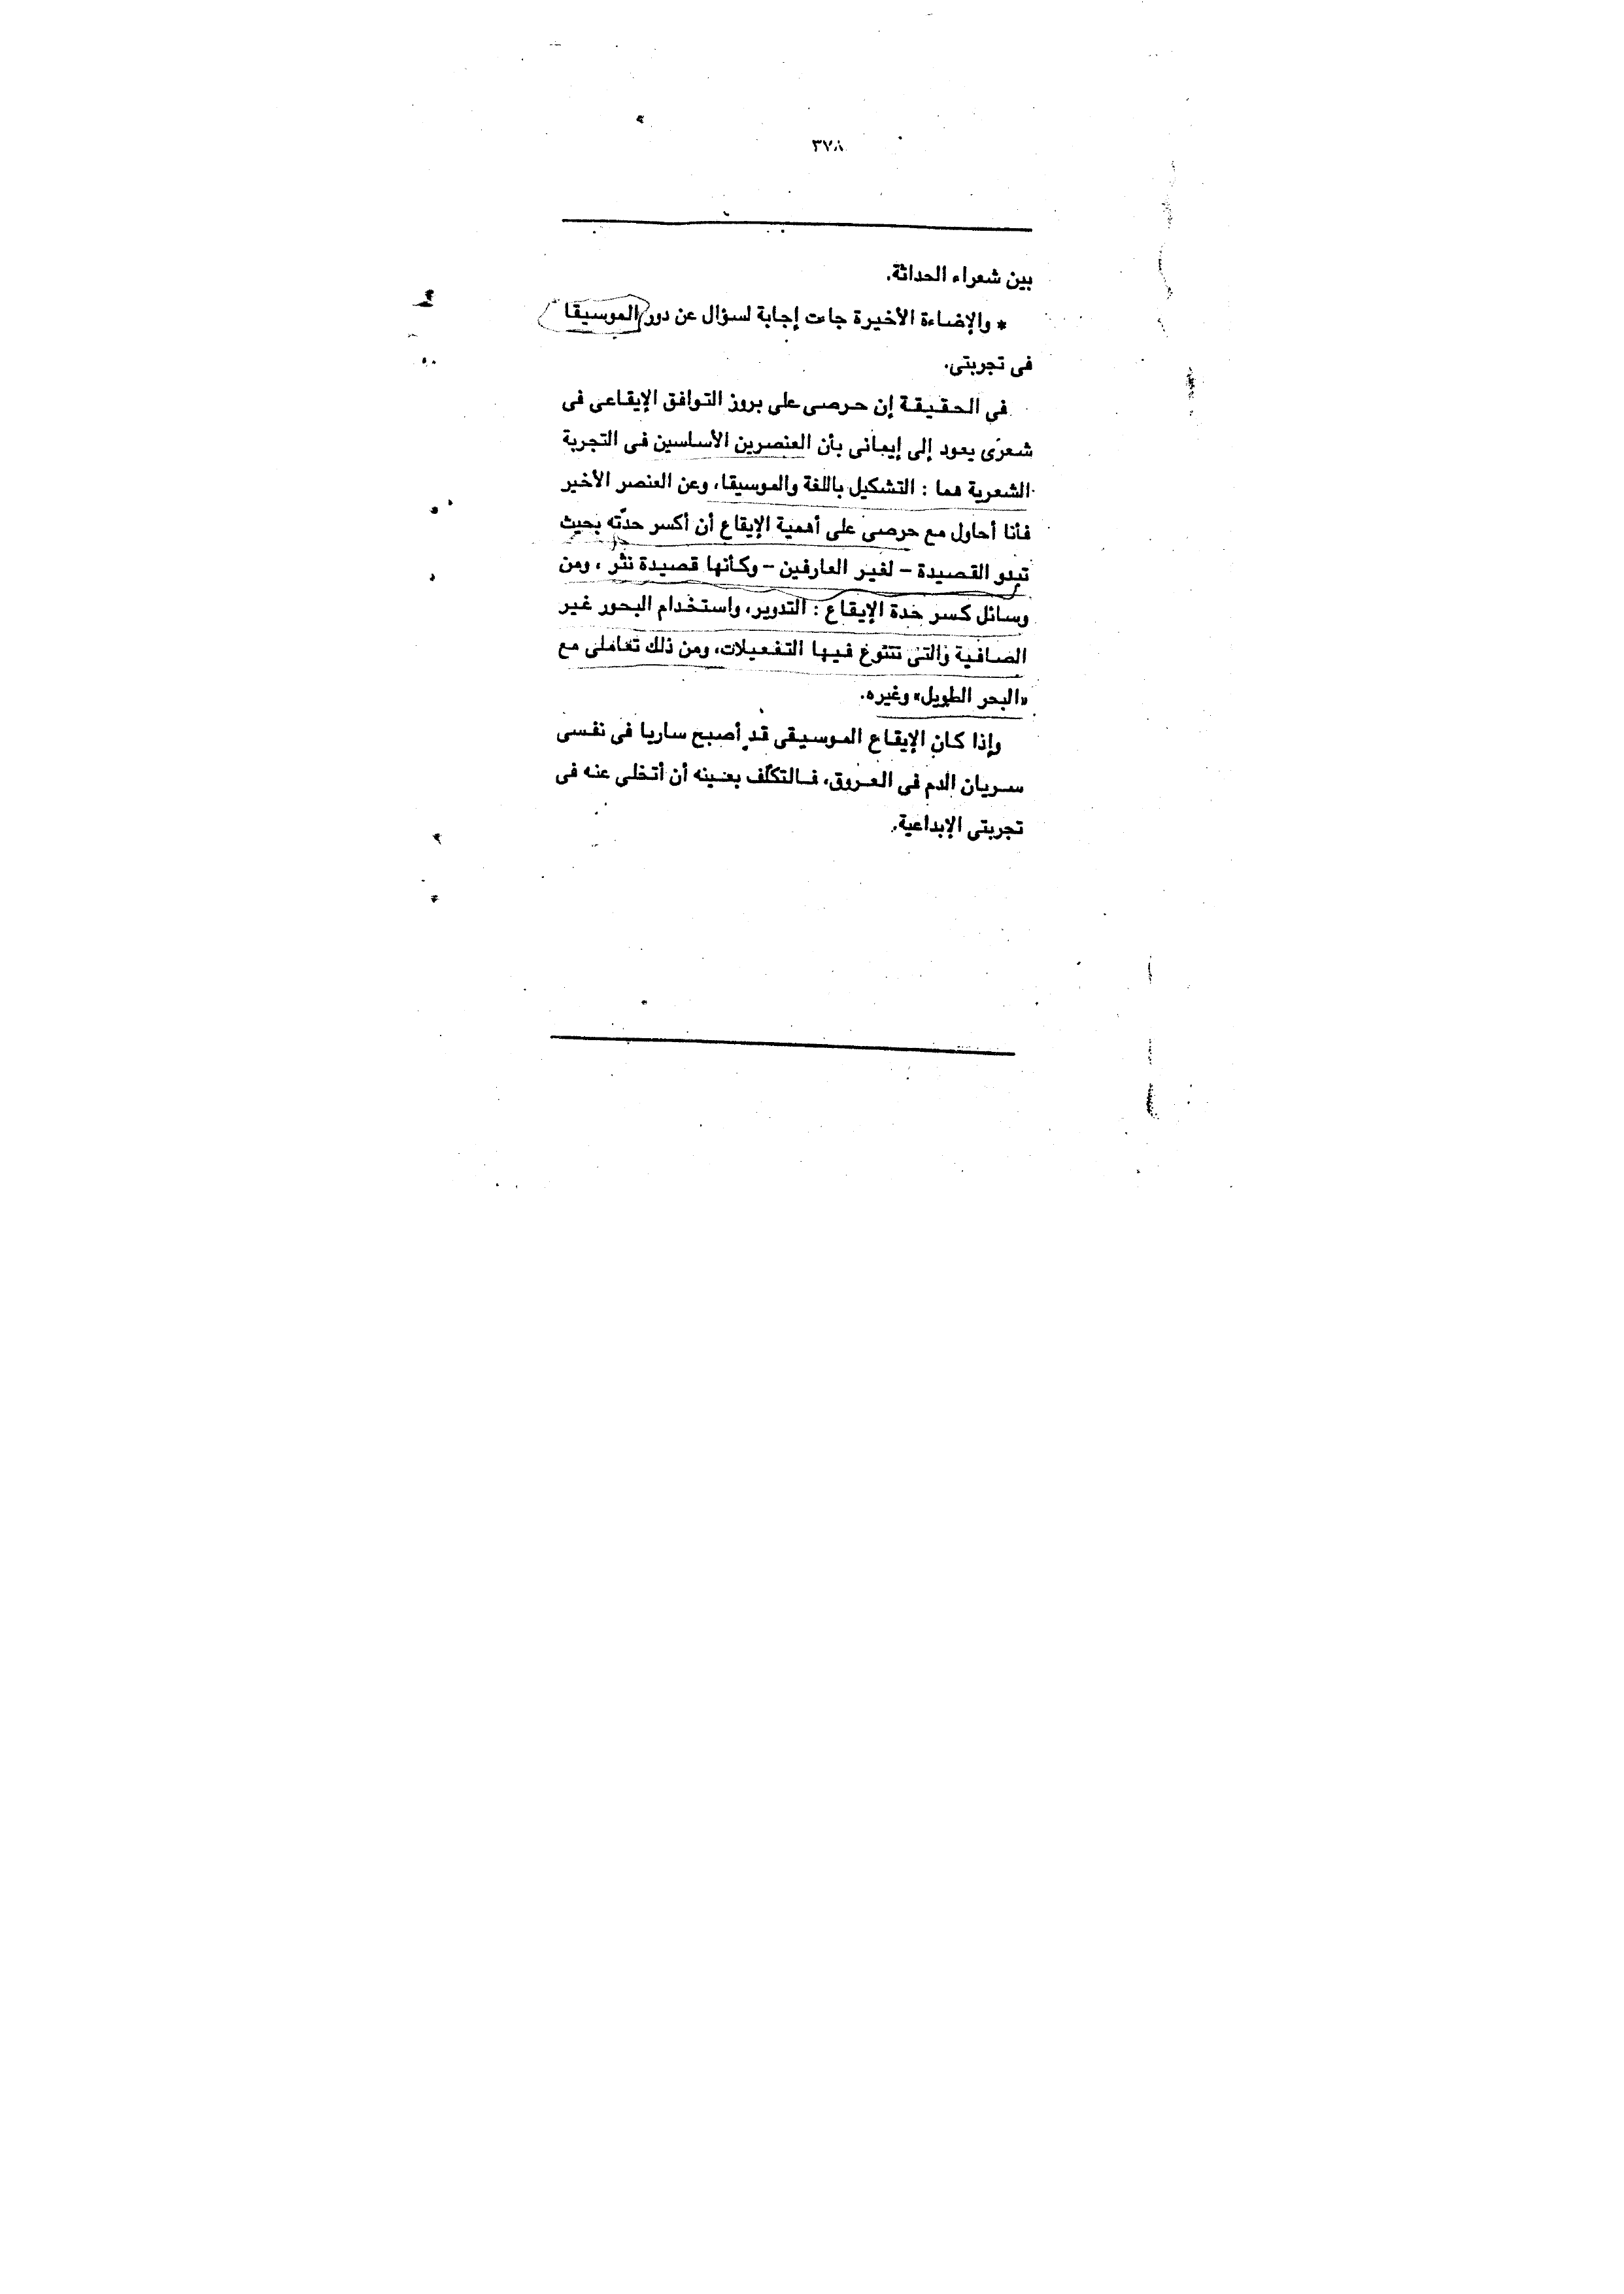 ٣٧٨
بين شعراء الحداثة.
* والإضاءة الأخيرة جاءت إجابة لسؤال عن دور الموسيقا
فى تجربتى.
فى الحقيقة إن حرصى على بروز التوافق الإيقاعى فى
شعرى يعود إلى إيمانى بأن العنصرين الأساسين فى التجربة
الشعرية هما : التشكيل باللغة والموسيقا، وعن العنصر الأخير
فأنا أحاول مع حرصى على أهمية الإيقاع أن أكسر حدّته بحيث
تبدو القصيدة – لغير العارفين – وكأنها قصيدة نثر ، ومن
وسائل كسر حدة الإيقاع : التدوير، واستخدام البحور غير
الصافية والتى تتنوع فيها التفعيلات، ومن ذلك تعاملى مع
«البحر الطويل» وغيره.
وإذا كان الإيقاع الموسيقى قد أصبح ساريا فى نفسى
سريان الدم فى العروق، فالتكلّف بعينه أن أتخلى عنه فى
تجربتى الإبداعية.